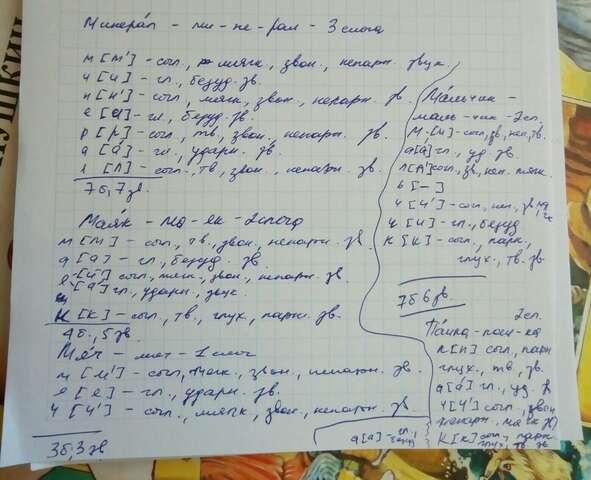 Минера́л - ми-не-рал - 3 слога
м [м'] - согл., мягк., звон., непарн. звук
и [и] - гл., безуд. зв.
н [н'] - согл., мягк., звон., непарн. зв.
е [а] - гл., безуд. зв.
р [р] - согл., тв., звон., непарн. зв.
а [а́] - гл., ударн. зв.
л [л] - согл., тв., звон., непарн. зв.
7 б, 7 зв.
Мая́к - ма-як - 2 слога
м [м] - согл., тв., звон., непарн. зв
а [а] - гл., безуд. зв.
[й'] согл., мягк., звон., непарн. зв.
[а́] гл., ударн. звук.
к [к] - согл., тв., глух., парн. зв.
4 б., 5 зв.
Мяч - мяч - 1 слог
м [м'] - согл., мягк., звон., непарн. зв.
- гл., ударн. зв.
ч [ч'] - согл., мягк., звон., непарн. зв
3 б, 3 зв
Ма́льчик -
маль-чик - 2 сл.
согл, зв, неп, тв.
а [а́] гл., уд. зв.
согл, зв., неп. мягк.
ь [-]
ч [ч'] - согл., неп., зв,
и [и] - гл., безуд
к [к] - согл., парн.,
глух., тв. зв
7 б 6 зв.
2 сл.
[п] согл, парн
глух., тв., зв.
а [а́] гл., уд.
ч [ч'] согл, звон
непарн, мягк зв
к [к] согл., парн.
глух, тв. зв
а [а] - гл.,
ПУШКИН